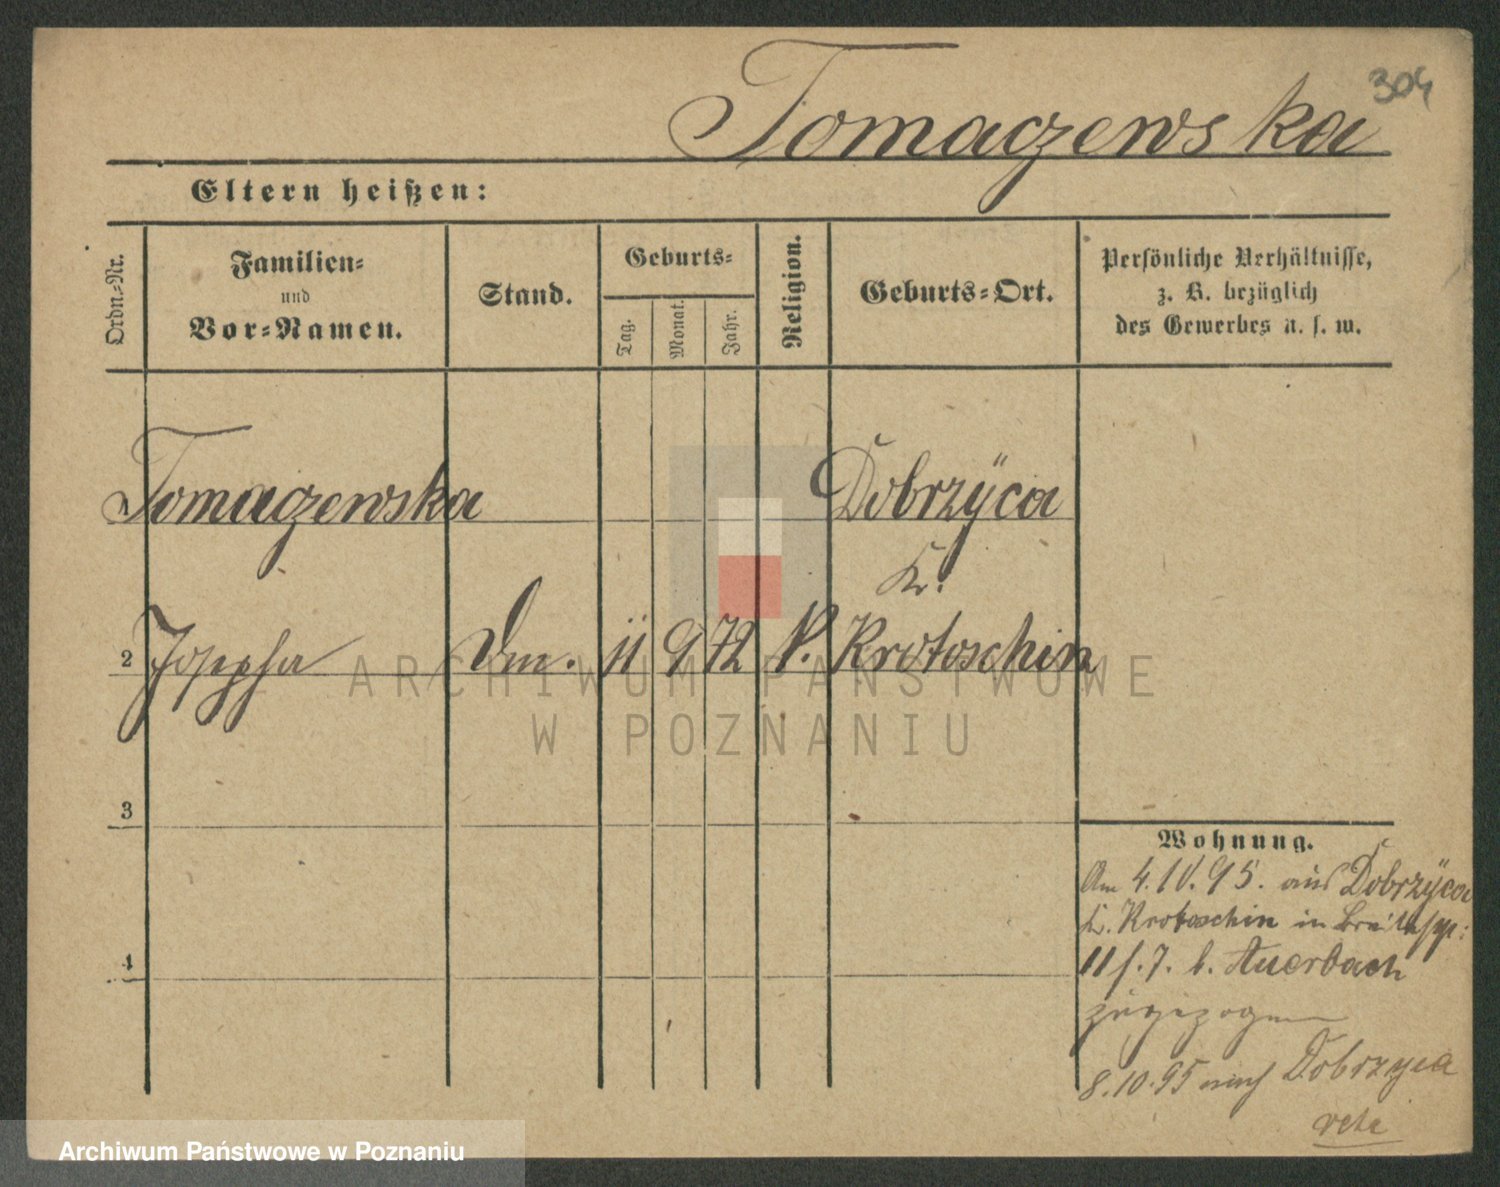 304
Tomaczewska
Eltern heißen:
Ordn.-Nr.
Familien-
und
Vor-Namen.
Stand.
Geburts-
Tag.
Monat.
Jahr.
Religion.
Geburts-Ort.
Persönliche Verhältnisse,
z. B. bezüglich
des Gewerbes u. s. w.
Tomaczewska
Dobrzÿca
K.
2 Josepha
11 9 72
Krotoschin
3
4
Wohnung.
Am 4.10.95. aus Dobrzÿca
K. Krotoschin in
11 b. Auerbach
zugezogen
8.10.95 nach Dobrzyca
ARCHIWUM PAŃSTWOWE
W POZNANIU
Archiwum Państwowe w Poznaniu